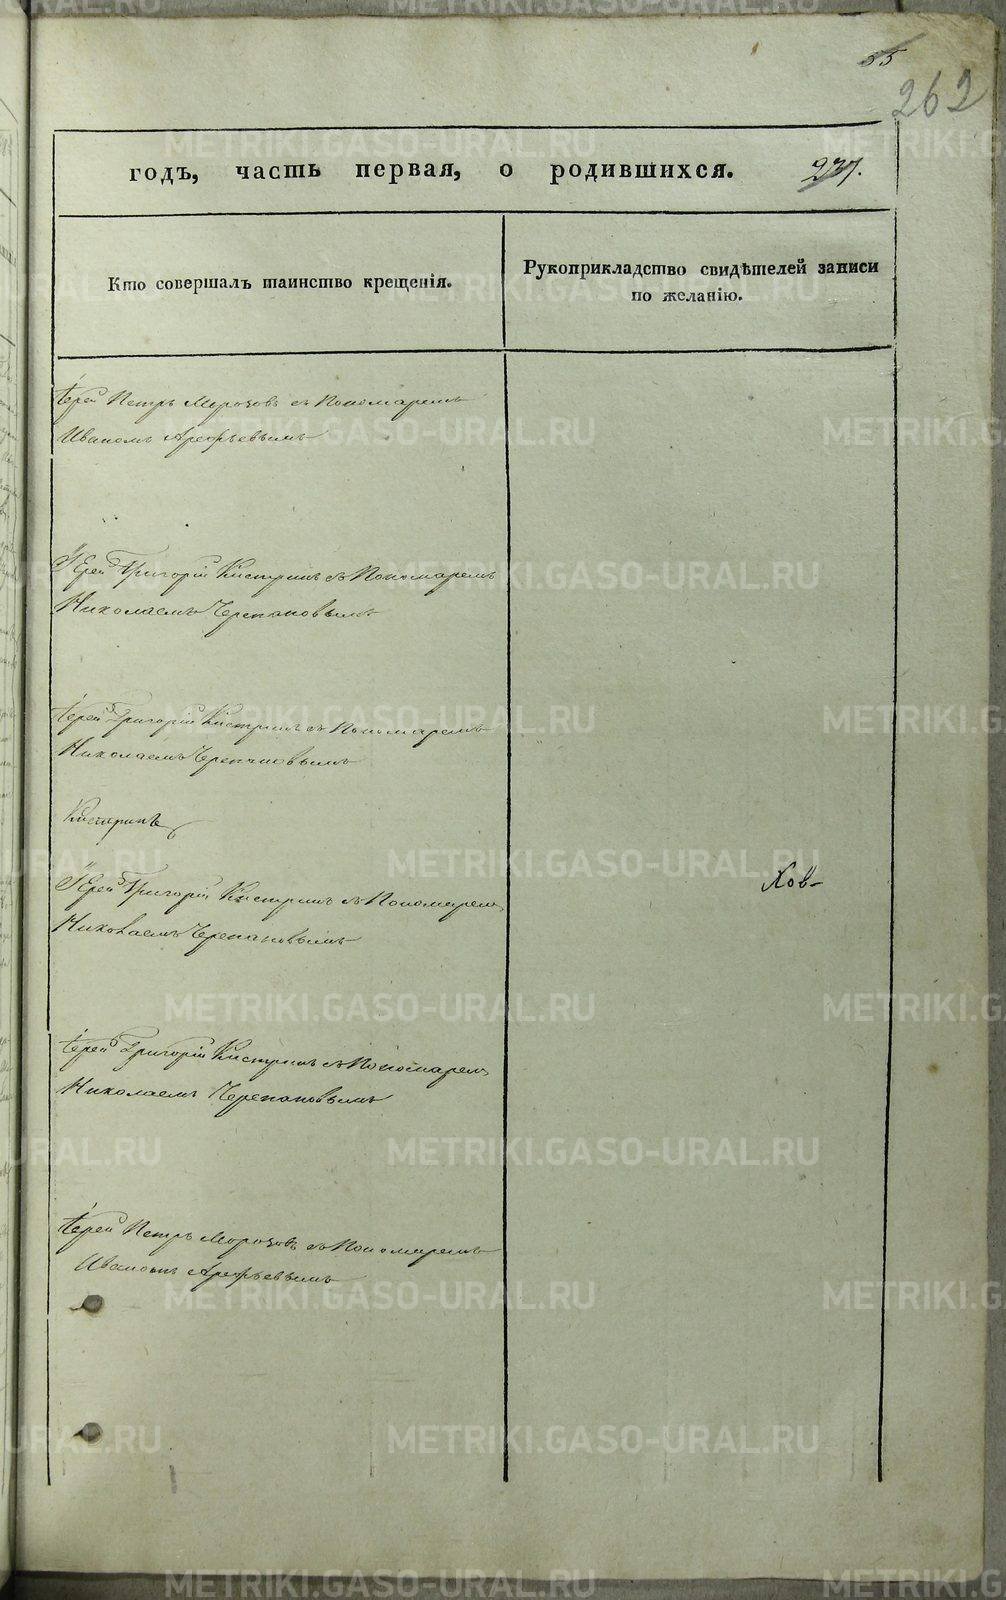 55
262
годъ, часть первая, о родившихся. 237.
Кто совершалъ таинство крещенія.
Рукоприкладство свидѣтелей записи
по желанію.
Іерей Петръ Морозовъ съ Пономаремъ
Иваномъ Арефьевымъ
Іерей Григорій Кистринъ съ Пономаремъ
Николаемъ Черепановымъ
Іерей Григорій Кистринъ съ Пономаремъ
Николаемъ Черепановымъ
Кистринъ
Іерей Григорій Кистринъ съ Пономарем
Николаемъ Черепановымъ
Хов-
Іерей Григорій Кистринъ съ Пономарем
Николаемъ Черепановымъ
Іерей Петръ Морозовъ съ Пономаремъ
Иваномъ Арефьевымъ
METRIKI.GASO-URAL.RU